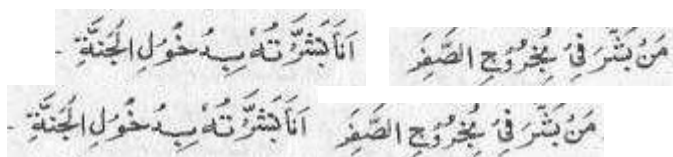 مَنْ بَشَّرَ فِیْ بِخُرُوْجِ الصَّفَرِ اَنَا بَشَّرْتُهٗ بِدُخُوْلِ الْجَنَّةِ -
مَنْ بَشَّرَ فِیْ بِخُرُوْجِ الصَّفَرِ اَنَا بَشَّرْتُهٗ بِدُخُوْلِ الْجَنَّةِ -